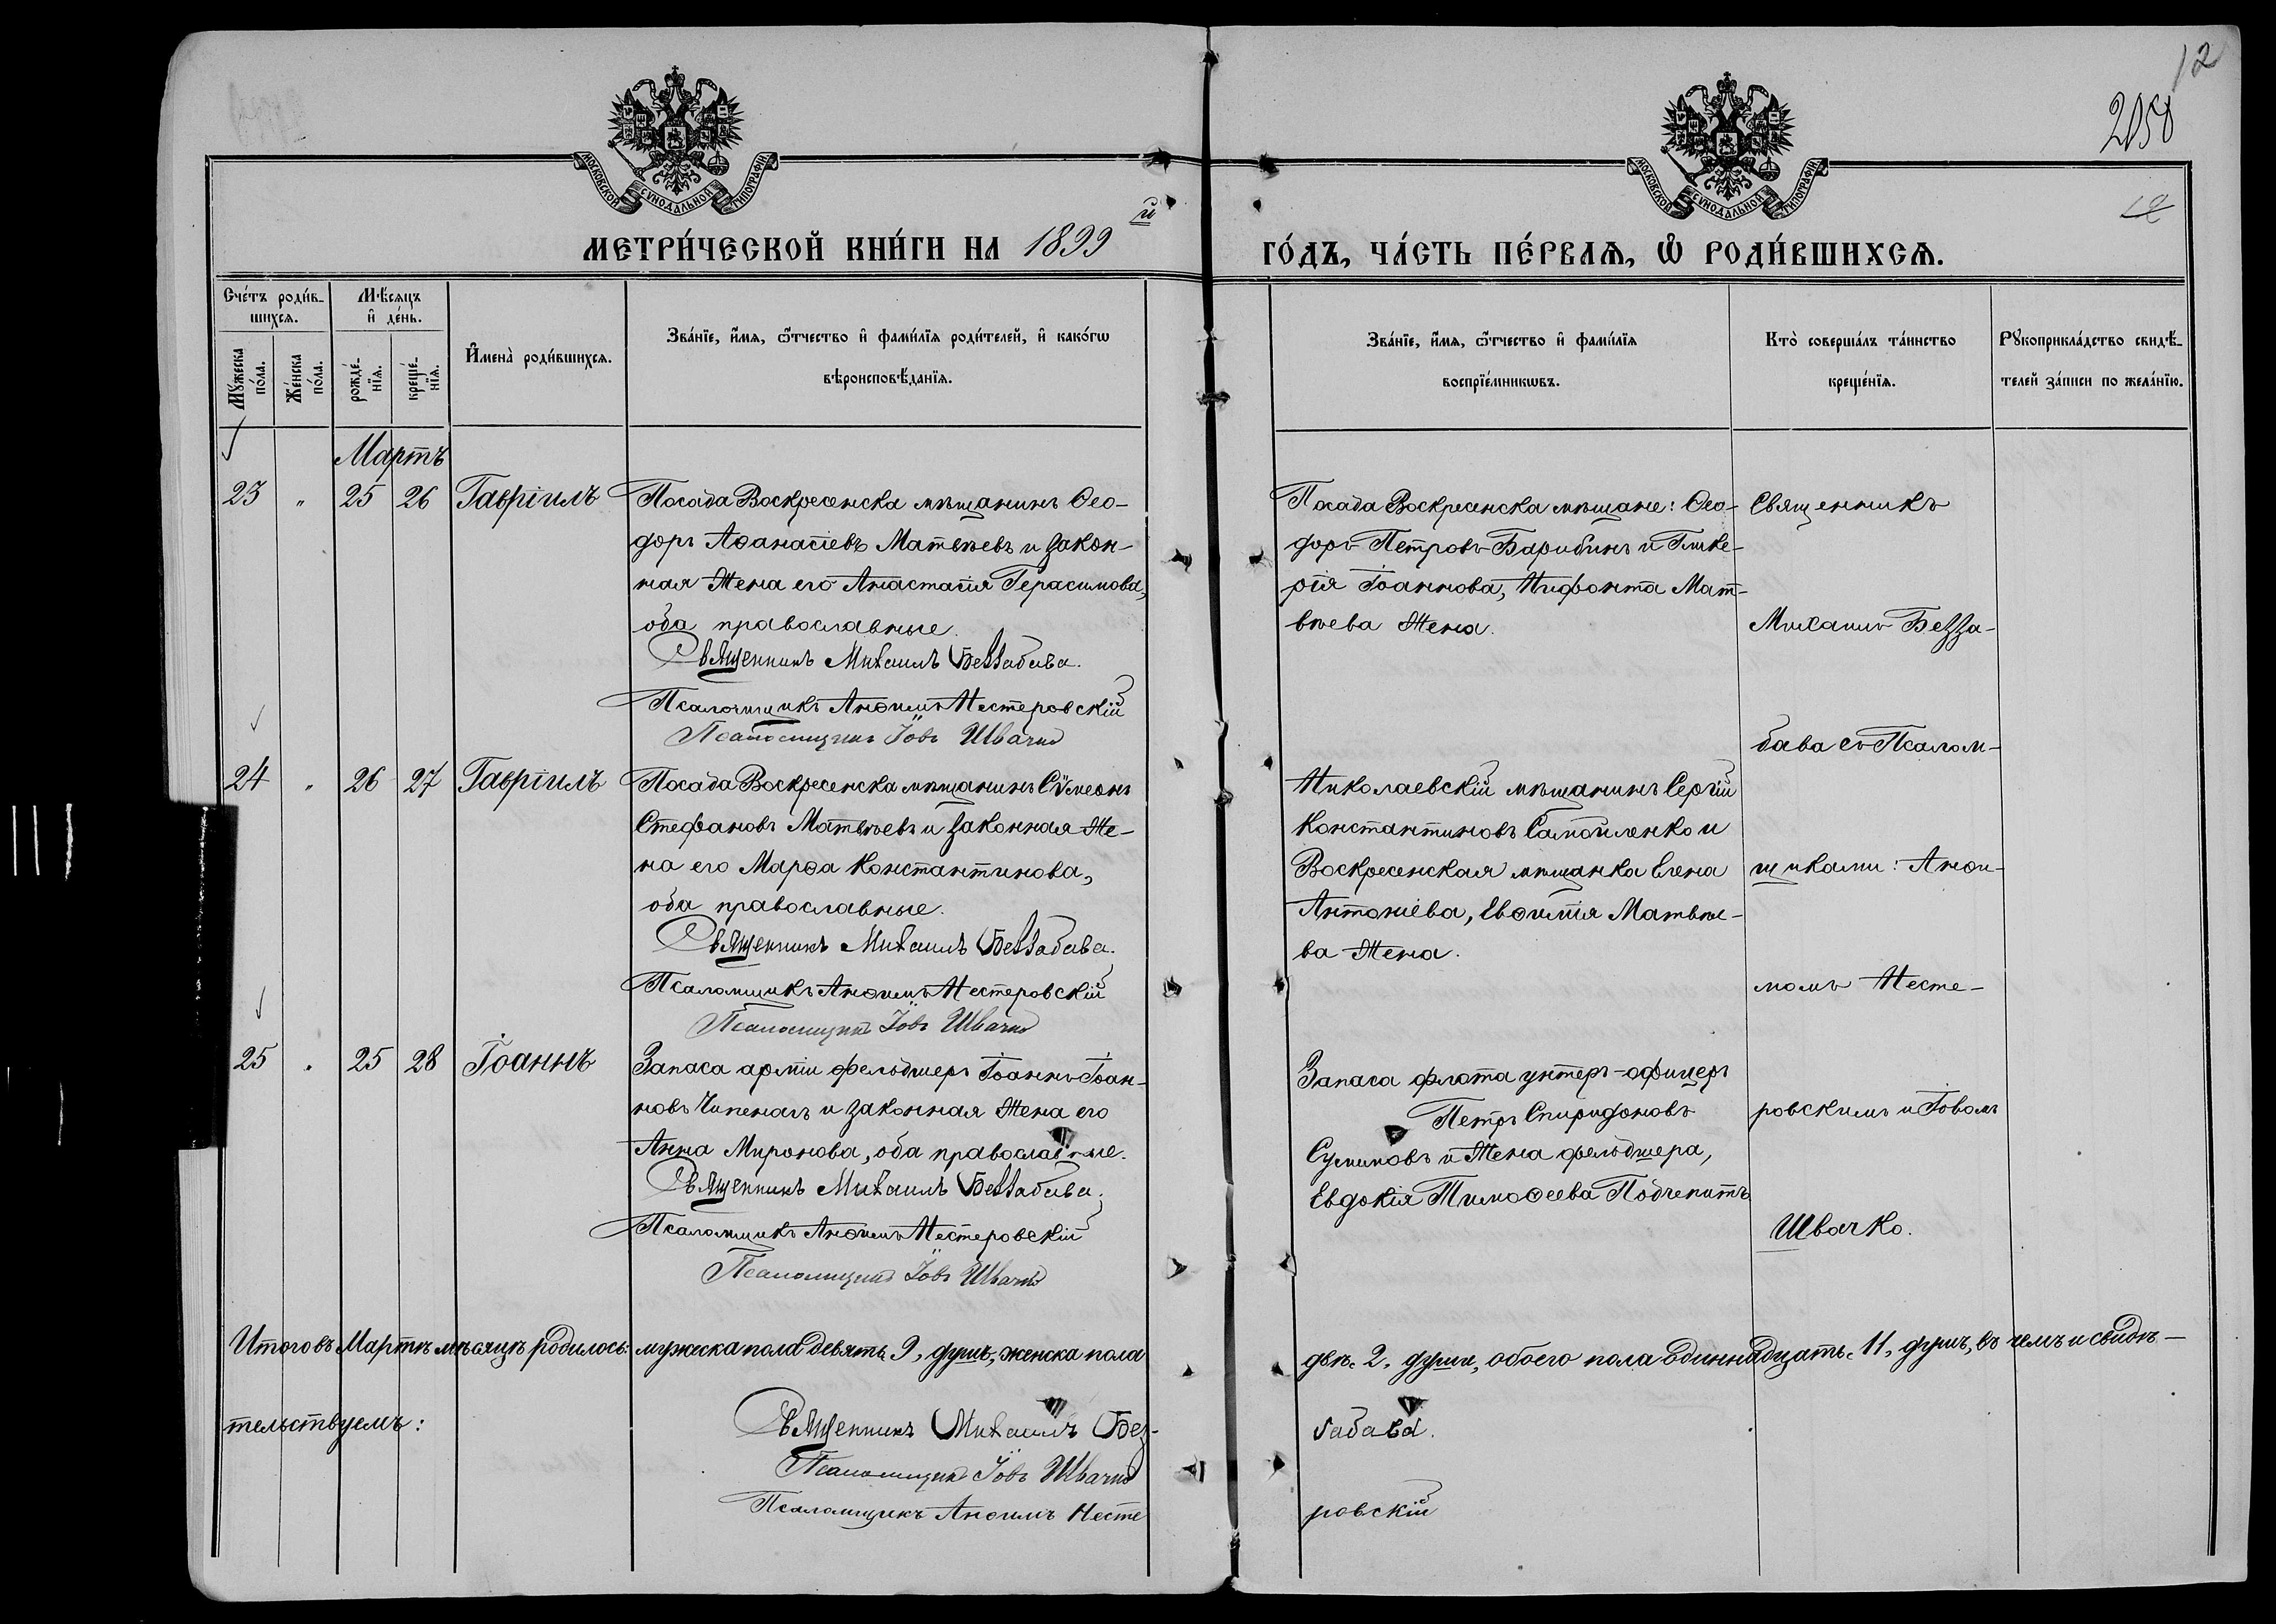 12
2158
12
МОСКОВСКОЙ СѴНОДАЛЬНОЙ ТИПОГРАФІИ
МОСКОВСКОЙ СѴНОДАЛЬНОЙ ТИПОГРАФІИ
МЕТРИ́ЧЕСКОЙ КНИ́ГИ НА 1899 й
ГО́ДЪ, ЧА́СТЬ ПЕ́РВАѦ, Ѡ҆ РОДИ́ВШИХСѦ.
Сче́тъ роди́в-
шихсѧ.
Мꙋжеска
по́ла.
Же́нска
по́ла.
Мѣ́сѧцъ
и҆ де́нь.
рожде́-
нїѧ.
креще́-
нїѧ.
И҆мена̀ роди́вшихсѧ.
Зва́нїе, и҆́мѧ, ѻ҆́тчество и҆ фами́лїѧ роди́телей, и҆ како́гѡ
вѣроисповѣ́данїѧ.
Зва́нїе, и҆́мѧ, ѻ҆́тчество и҆ фами́лїѧ
воспрїе́мникѡвъ.
Кто̀ соверша́лъ та́инство
креще́нїѧ.
Рꙋкоприкла́дство свидѣ́-
телей за́писи по жела́нїю.
Мартъ
23 " 25 26 Гавріилъ
Посада Воскресенска мѣщанинъ Ѳео-
доръ Аѳанасіевъ Матвѣевъ и закон-
ная жена его Анастасія Герасимова,
оба православные.
Священникъ Михаилъ Беззабава.
Псаломщикъ Анѳимъ Нестеровскій
Псаломщикъ Іовъ Швачко
Посада Воскресенска мѣщане: Ѳео-
доръ Петровъ Барибинъ и Глике-
рія Іоаннова, Нифонта Мат-
вѣева жена.
Священникъ
Михаилъ Безза-
бава съ Псалом-
24 " 26 27 Гавріилъ
Посада Воскресенска мѣщанинъ Сѵмеонъ
Стефановъ Матвѣевъ и законная же-
на его Марѳа Константинова,
оба православные.
Священникъ Михаилъ Беззабава.
Псаломщикъ Анѳимъ Нестеровскій
Псаломщикъ Іовъ Швачко
Николаевскій мѣщанинъ Сергій
Константиновъ Самойленко и
Воскресенская мѣщанка Елена
Антоніева, Евѳимія Матвѣе-
ва жена.
щиками: Анѳи-
момъ Несте-
25 " 25 28 Іоаннъ
Запаса арміи фельдшеръ Іоаннъ Іоан-
новъ Чипенагъ и законная жена его
Анна Миронова, оба православные.
Священникъ Михаилъ Беззабава.
Псаломщикъ Анѳимъ Нестеровскій
Псаломщикъ Іовъ Швачко
Запаса флота унтеръ-офицеръ
Петръ Спиридоновъ
и жена фельдшера,
Евдокія Тимоѳеева
ровскимъ и Іовомъ
Швачко.
Итого въ Мартѣ мѣсяцѣ родилось: мужеска пола девять, 9, душъ, женска пола
двѣ, 2, души, обоего пола одиннадцать, 11, душъ, въ чемъ и свидѣ-
тельствуемъ:
Священникъ Михаилъ Без-
забава.
Псаломщикъ Іовъ Швачко
Псаломщикъ Анѳимъ Несте
ровскій